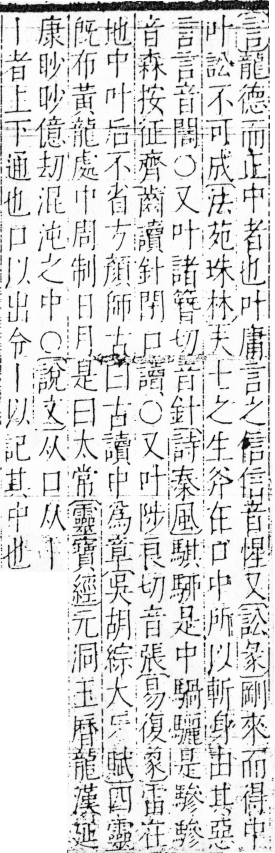 言龍德而正中者也叶庸言之信信音惺又訟彖剛來而得中
叶訟不可成法苑珠林夫士之生斧在口中所以斬身由其惡
言言音闇○又叶諸簪切音針詩秦風騏駵是中騧驪是驂驂
音森按征齊齒讀針閉口讀○又叶陟良切音張易復象雷在
地中叶后不省方顏師古曰古讀中爲章吳胡綜大牙賦四靈
旣布黃龍處中周制日月是曰太常靈寶經元洞玉曆龍漢延
康眇眇億劫混沌之中○說文从口从丨
丨者上下通也口以出令丨以記其中也